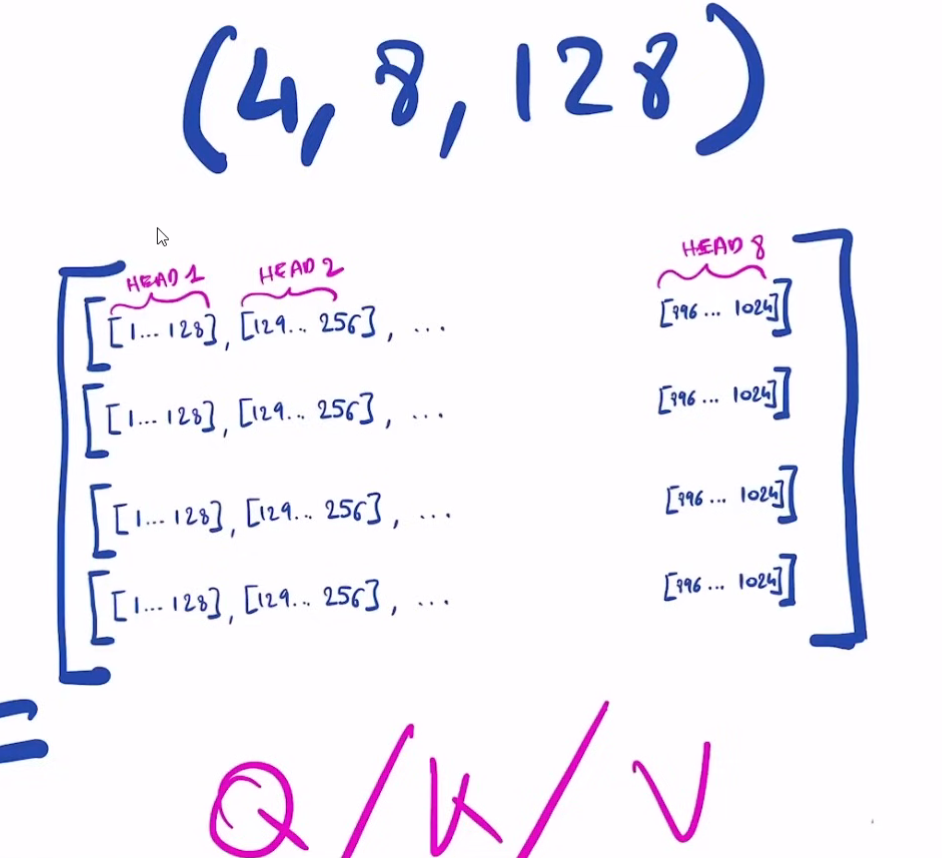 (4, 8, 128)
HEAD 1 HEAD 2 HEAD 8
[[[1... 128], [129... 256], ... [996... 1024]]
[[1... 128], [129... 256], ... [996... 1024]]
[[1... 128], [129... 256], ... [996... 1024]]
[[1... 128], [129... 256], ... [996... 1024]]]
=
Q/K/V